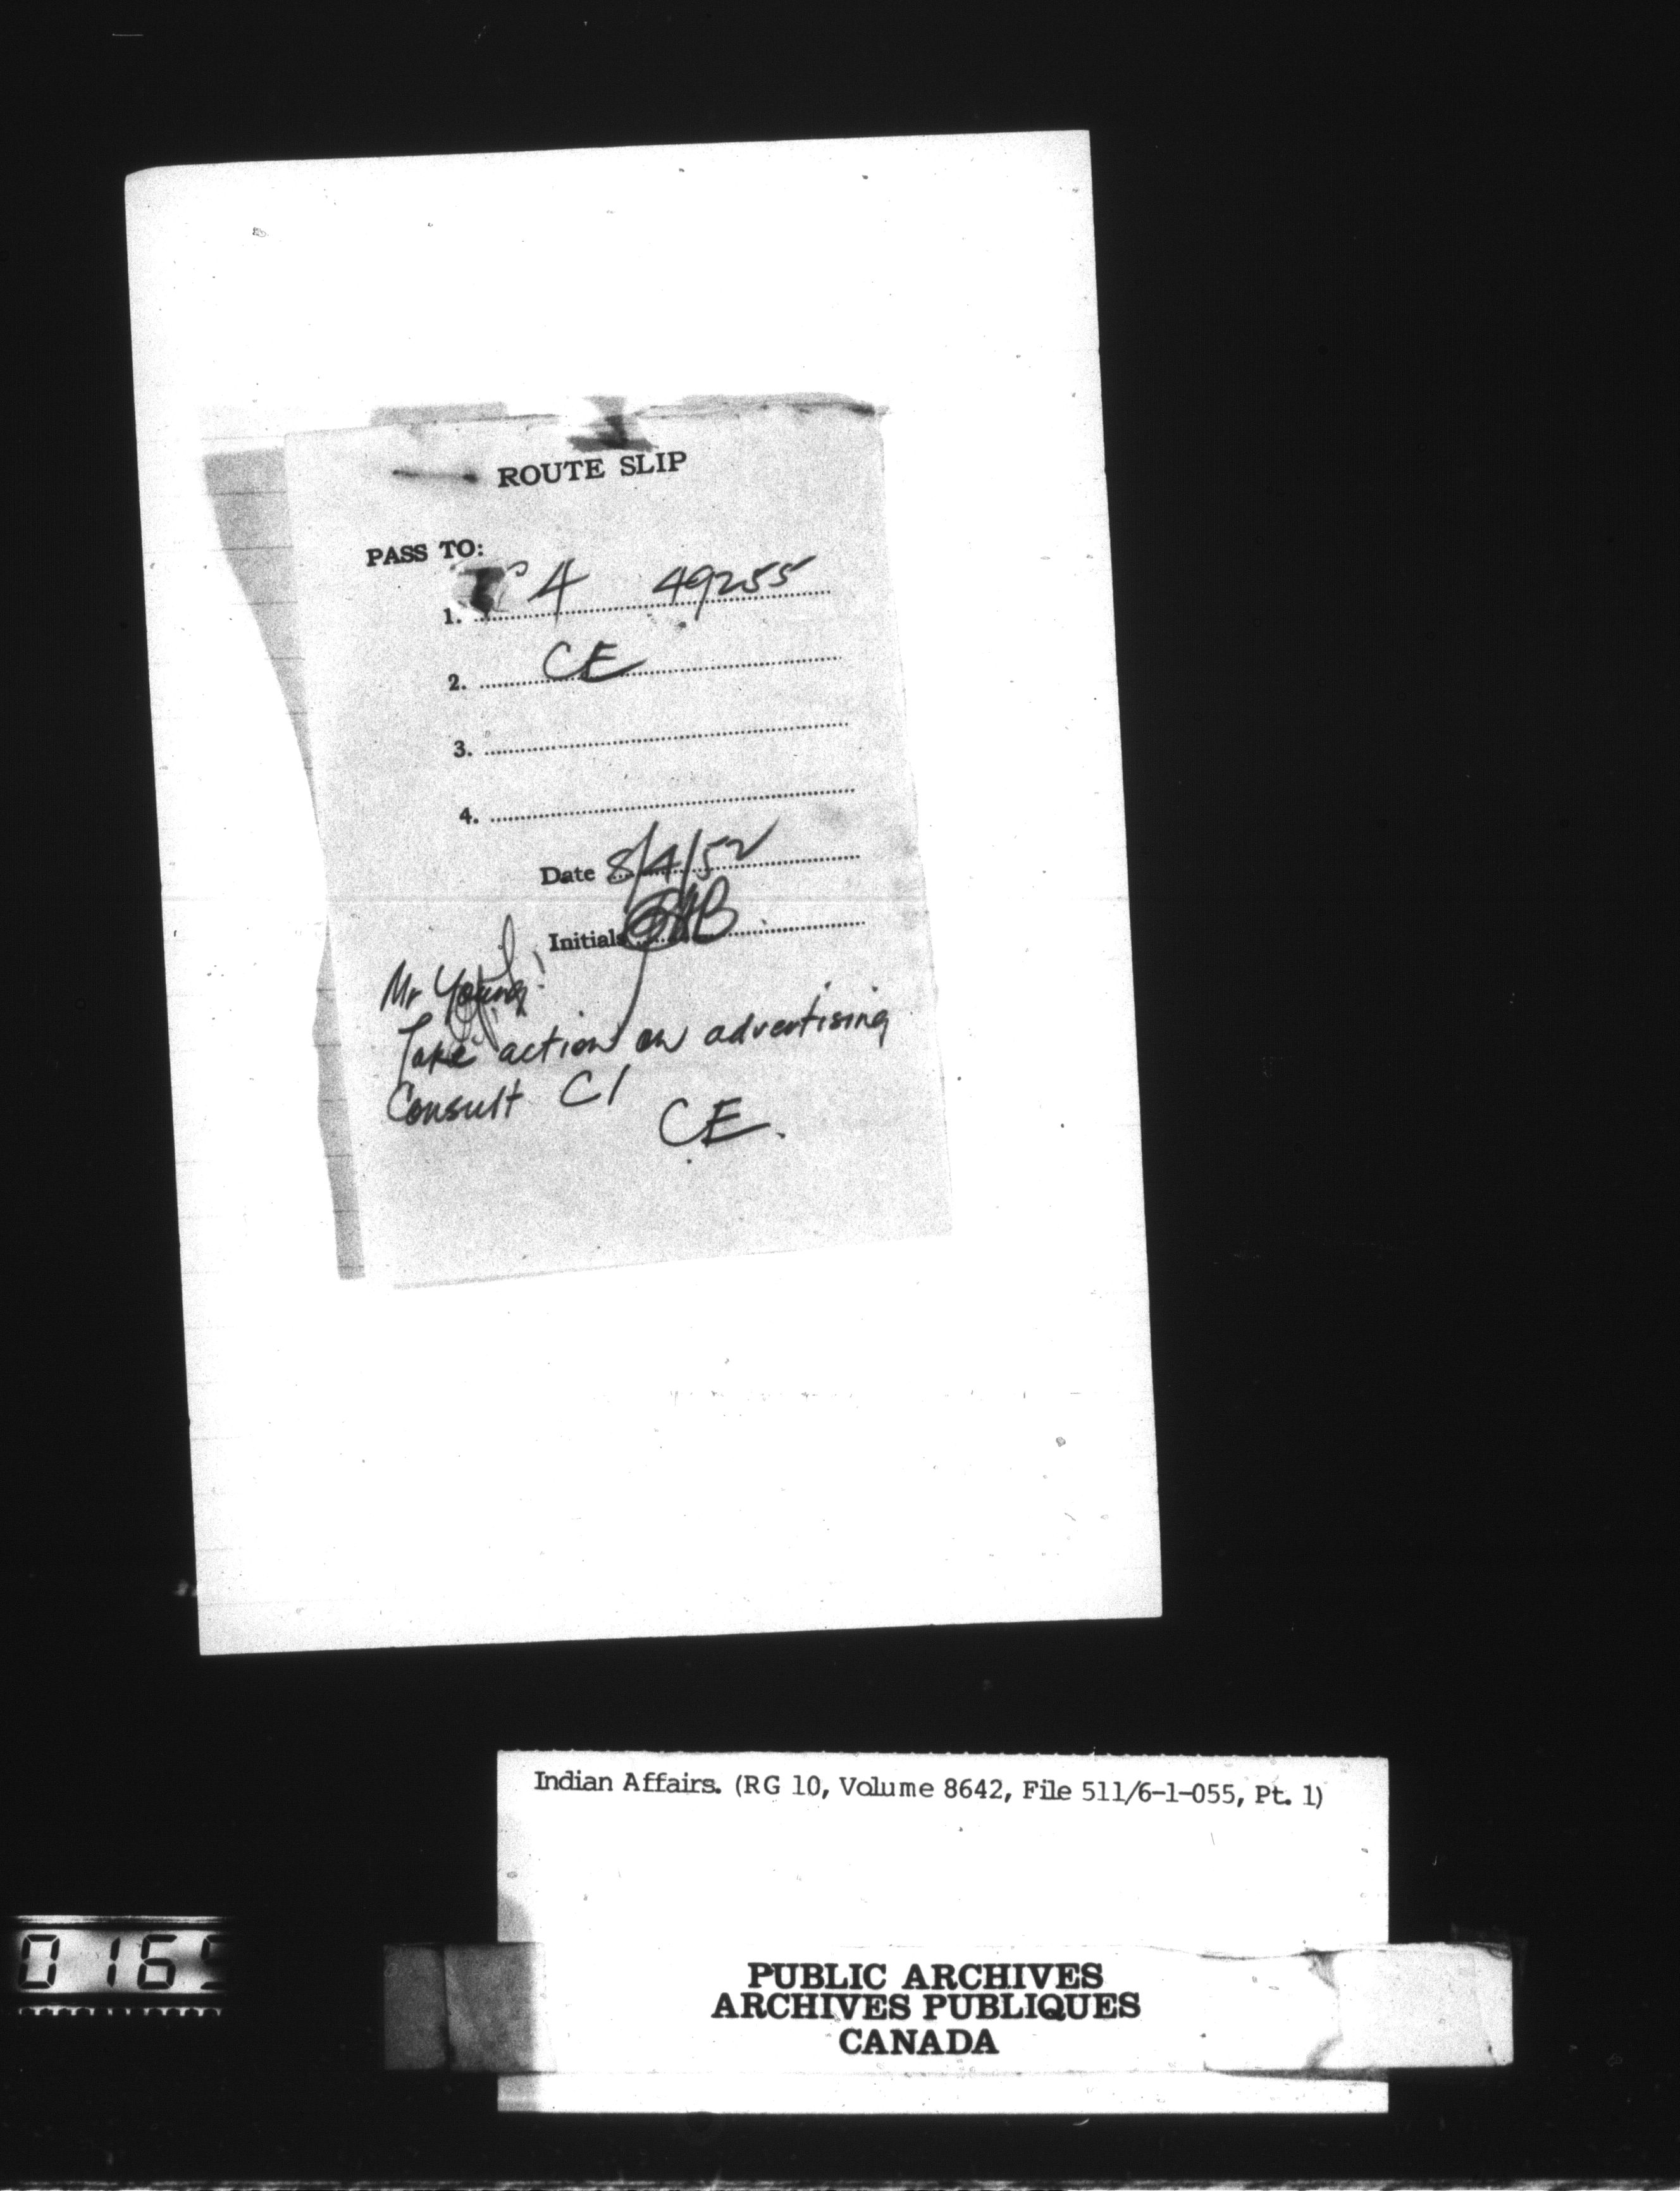 ROUTE SLIP
PASS TO:
1. 4 49255
2. CE
3.
4.
Date 8/4/52
Initials
Mr Young!
Take action on advertising
Consult C1
CE.
Indian Affairs. (RG 10, Volume 8642, File 511/6-1-055, Pt. 1)
0165
PUBLIC ARCHIVES
ARCHIVES PUBLIQUES
CANADA